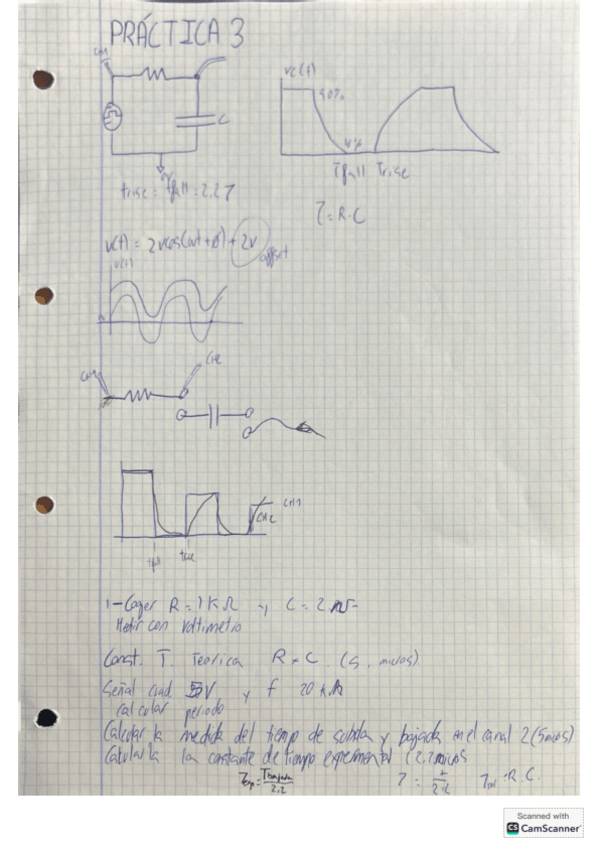 PRÁCTICA 3
CH1
vc(t)
90%
C
10%
Tfall Trise
trise = tfall = 2.2 τ
τ = R·C
v(t) = 2vcos(wt+φ) + 2v
offset
v(t)
CH1
CH2
CH1
CH2
tfall trise
1- Coger R = 1KΩ y C = 2 nF
Medir con voltimetro
Const. T. Teorica R×C. (s. micros)
Señal cuad. 5V y f 20 k
calcular periodo
Calcular la medida del tiempo de subida y bajada en el canal 2 (5 mics)
Calcular la constante de tiempo experimental (2,2 micros
= Tbajada/2.2
τ = t/2.2 = R·C.
Scanned with
CS CamScanner